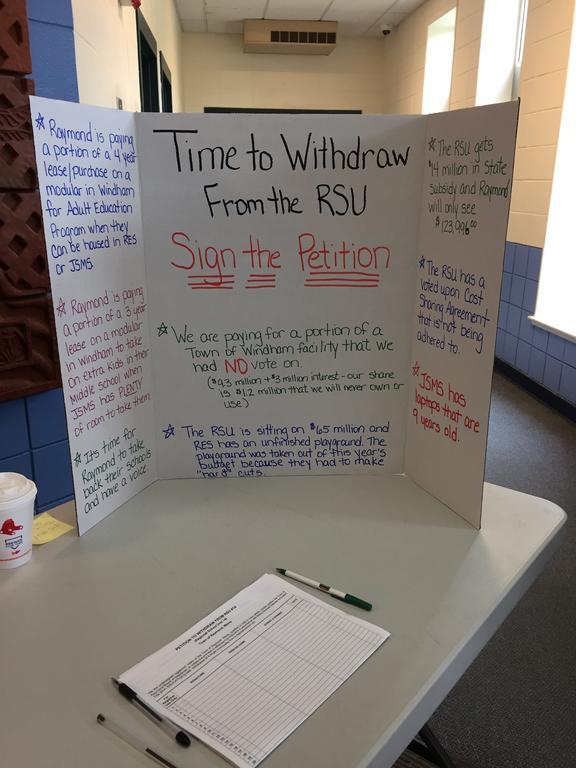 ☆ Raymond is paying
a portion of a 4 year
lease/purchase on a
modular in Windham
for Adult Education
Program when they
can be housed in RES
or JSMS.
☆ Raymond is paying
a portion of a 3 year
lease on a modular
in Windham to take
on extra kids in their
Middle school when
JSMS has PLENTY
of room to take them.
☆ It's time for
Raymond to take
back their schools
and have a voice
Time to Withdraw
From the RSU
Sign the Petition
☆ We are paying for a portion of a
Town of Windham facility that we
had NO vote on.
($9.3 million + $3 million interest - our share
is $1.2 million that we will never own or
use)
☆ The RSU is sitting on $6.5 million and
RES has an unfinished playground. The
playground was taken out of this year's
budget because they had to make
"hard" cuts.
☆ The RSU gets
$14 million in State
subsidy and Raymond
will only see
$123,996.00
☆ The RSU has a
voted upon Cost
Sharing Agreement
that is not being
adhered to.
☆ JSMS has
laptops that are
9 years old.
PETITION TO WITHDRAW FROM RSU #14
Town of Raymond, Maine